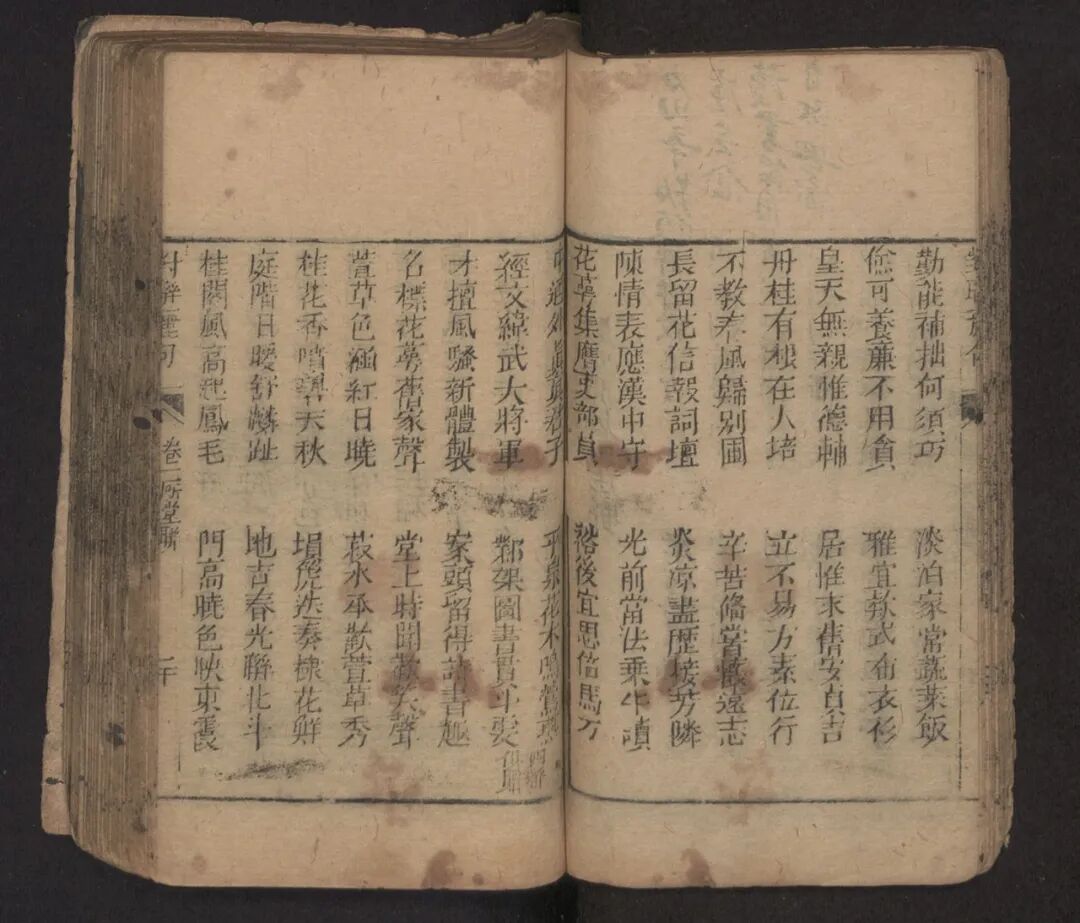 勤能補拙何須巧
淡泊家常蔬菜飯
儉可養廉不用貪
雅宜欵式布衣衫
皇天無親惟德輔
居惟末雋安百吉
丹桂有根在人培
立不易方素位行
不教春風歸别圃
辛苦俻嘗懷遠志
長留花信報詞壇
炎凉盡歷接芳隣
陳情表應漢中守
光前當法乗牛讀
花萼集膺史部員
裕後宜思倍馬方
經文緯武大將軍
鄴架圖書貫斗
才擅風騷新體製
案頭留得詩書趣
名標花萼舊家聲
堂上時聞歡笑聲
萱草色涵紅日曉
菽水承歡萱草秀
桂花香噴碧天秋
塤篪迭奏棣花鮮
庭階日暖舒麟趾
地吉春光聯北斗
桂閣風高起鳳毛
門高曉色映東震
卷一 所堂聯